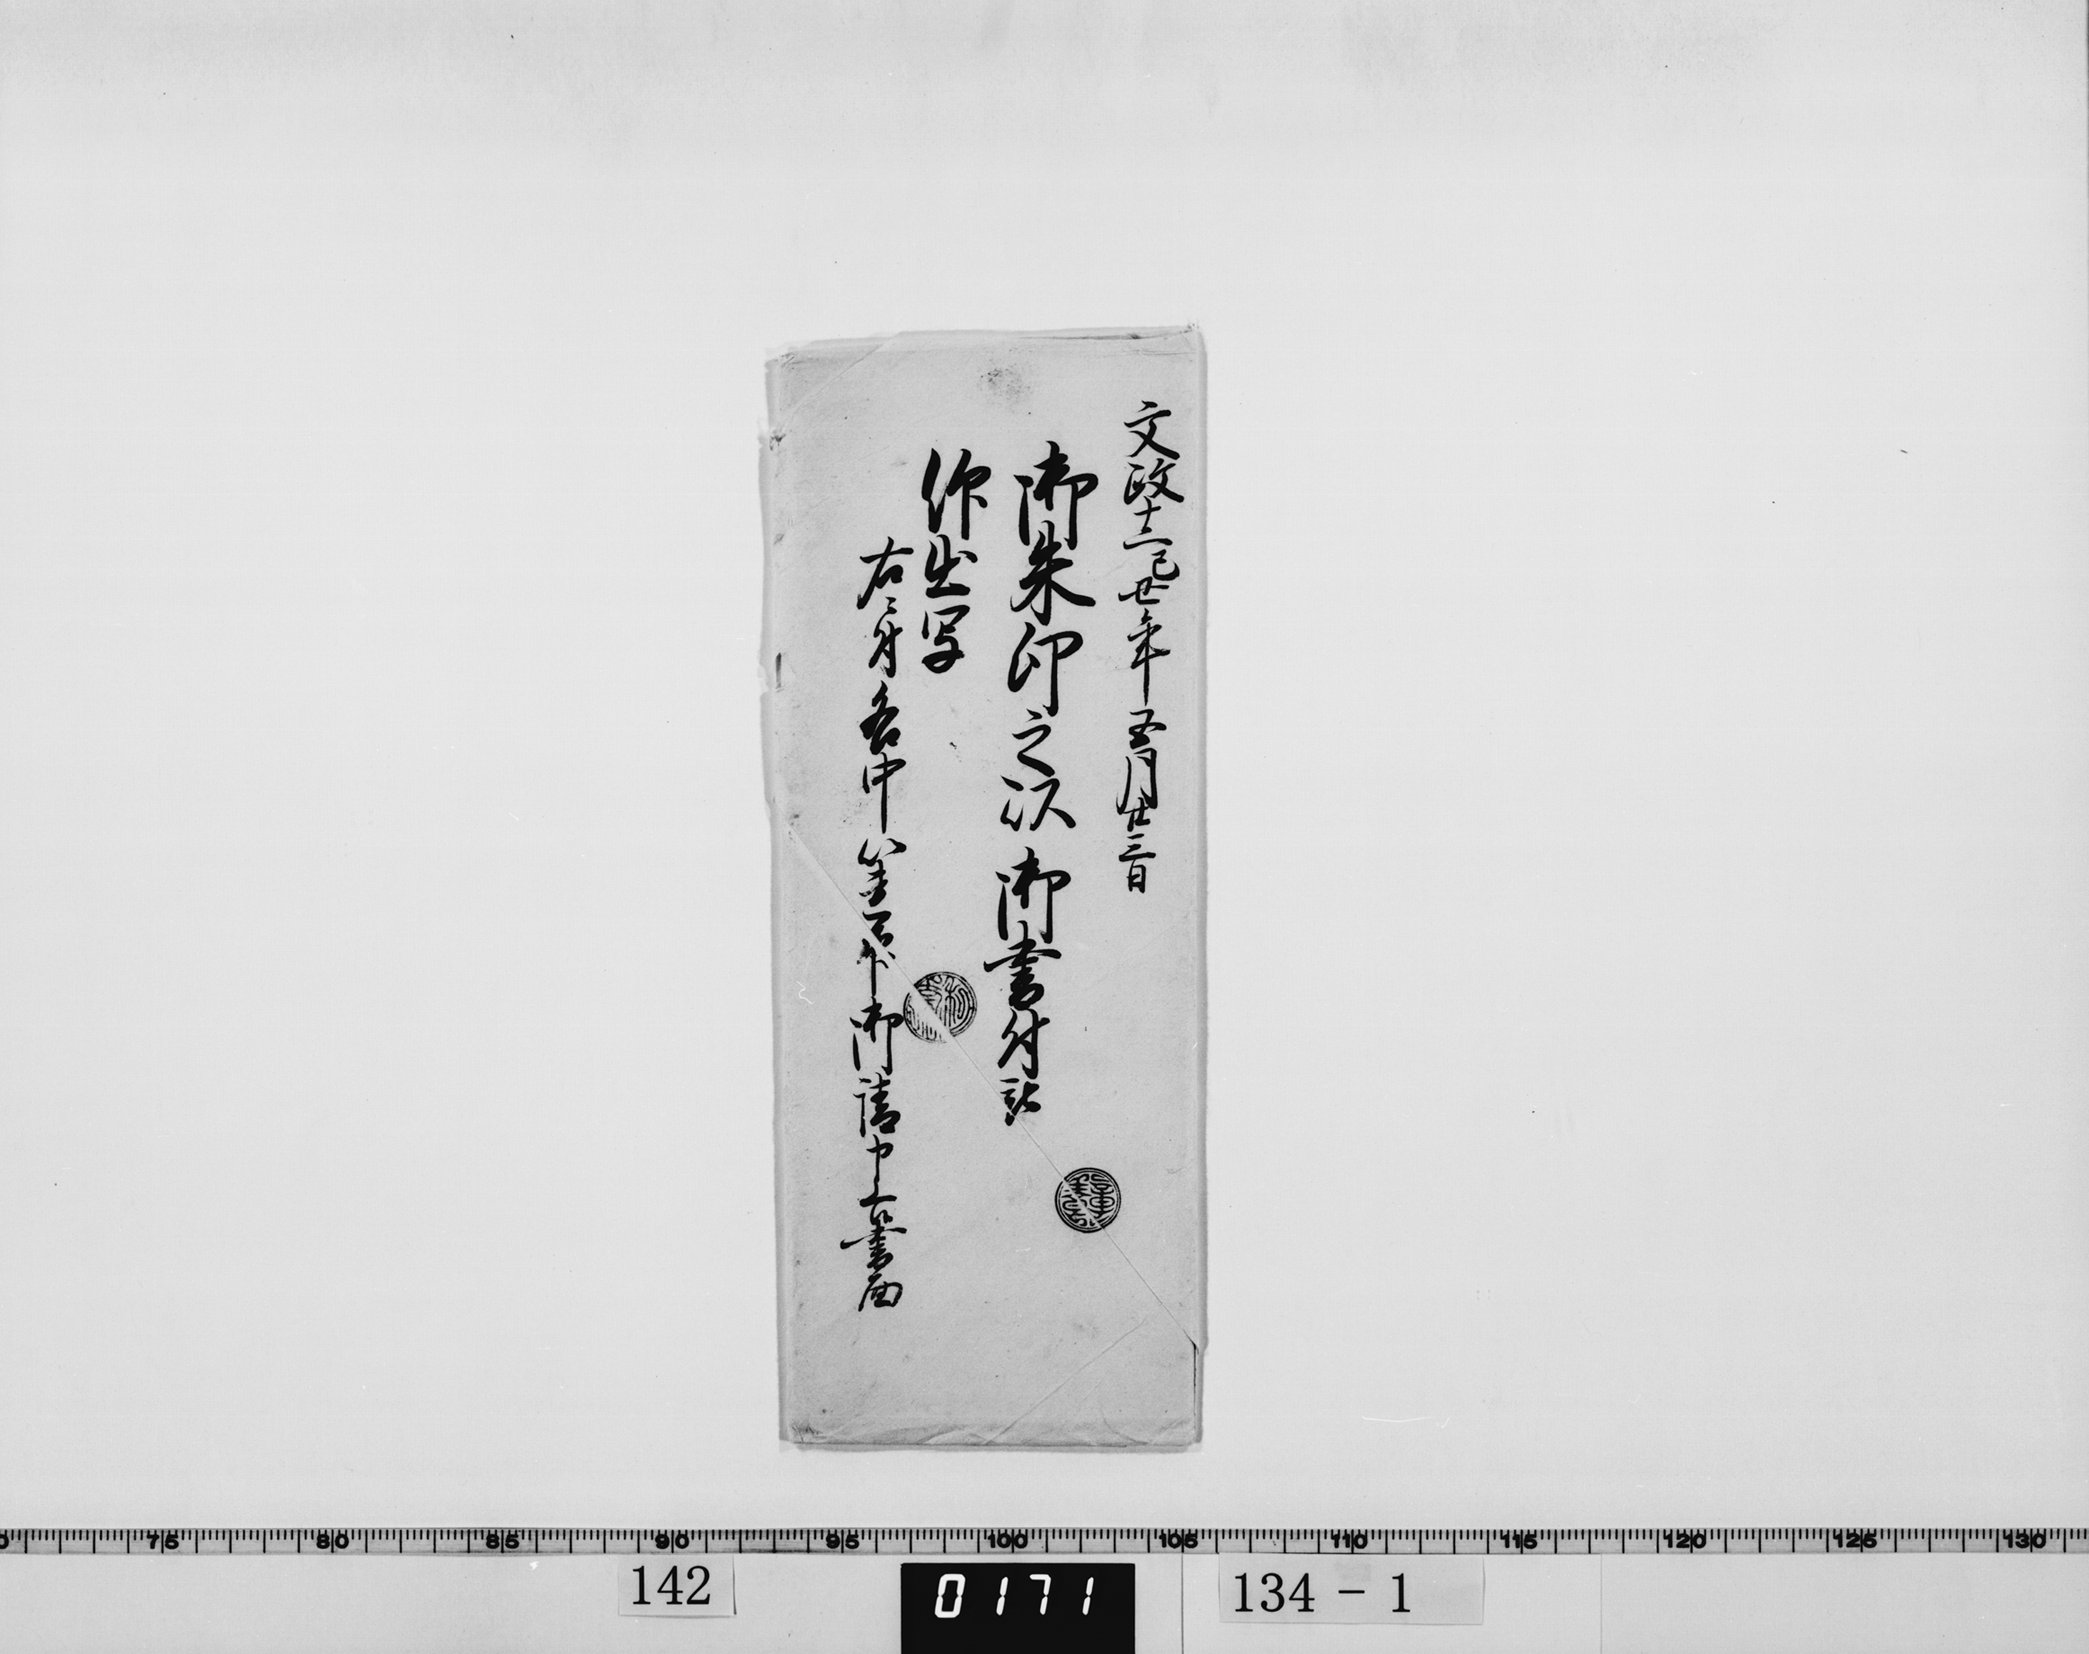 文政十二己丑年五月廿三日
御朱印之次御書付
仰出写
右ニ付名中
御請申上書面
75 80 85 90 95 100 105 110 115 120 125 130
142
0171
134-1